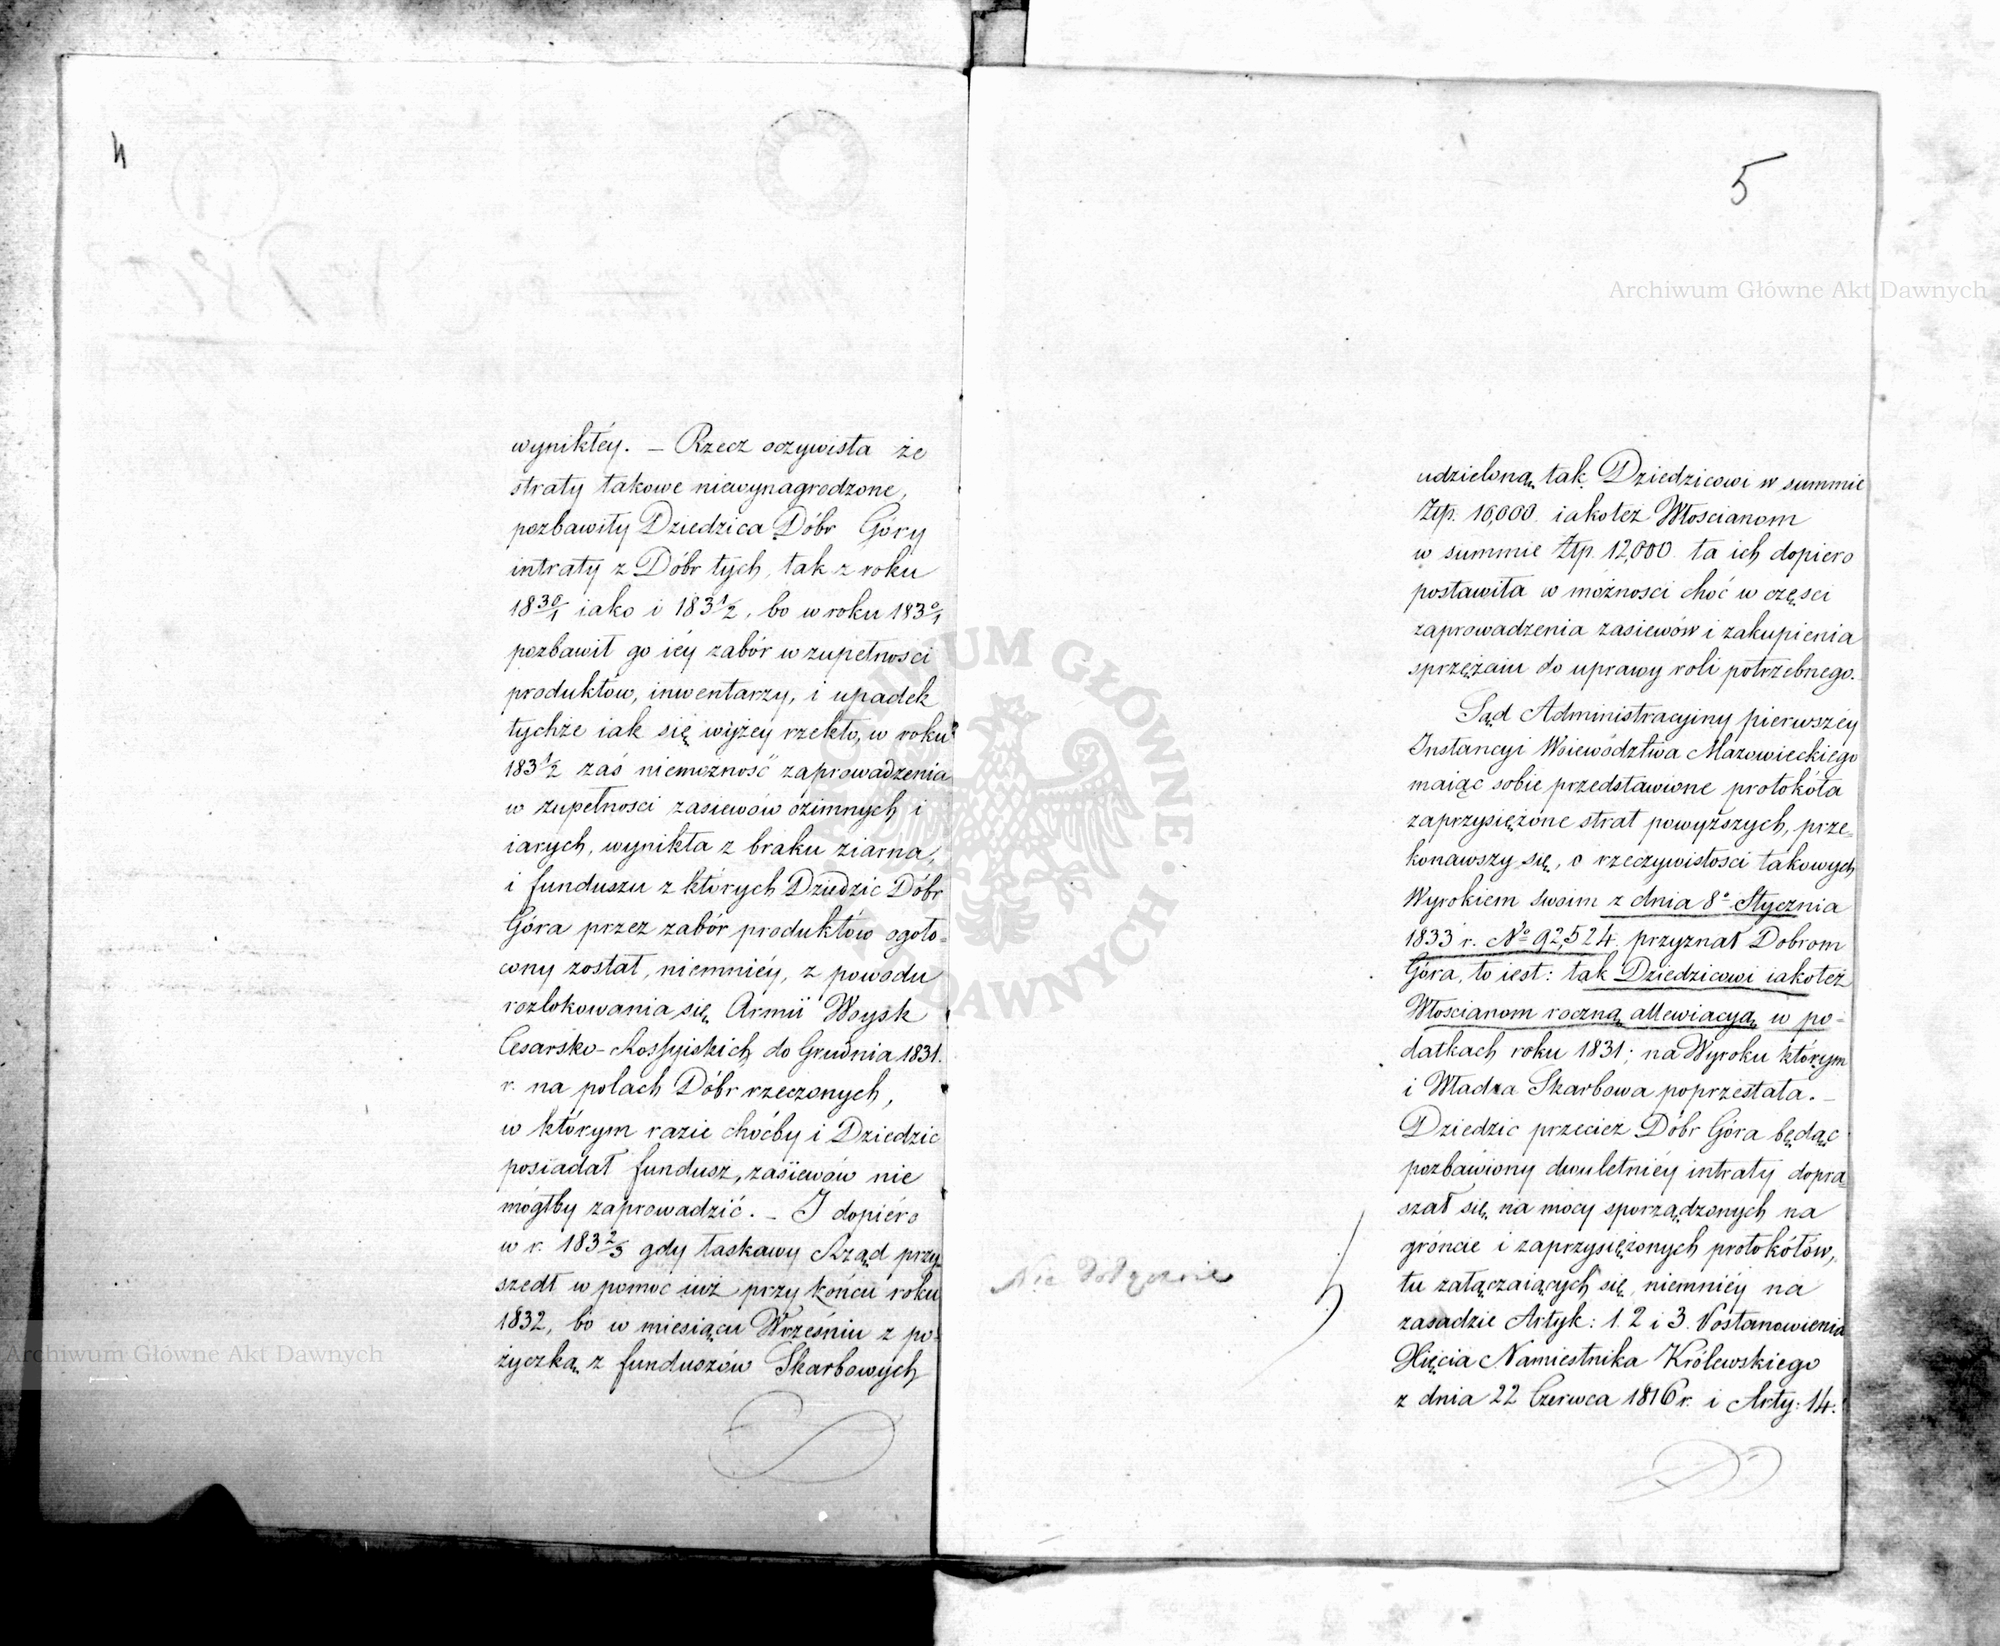 4
wynikłéy. — Rzecz oczywista że
straty takowe niewynagrodzone,
pozbawiły Dziedzica Dóbr Góry
intraty z Dóbr tych, tak z roku
1830/1 iako i 1831/2, bo w roku 1830/1
pozbawił go iéy zabór w zupełnosci
produktów, inwentarzy, i upadek
tychże iak się wyżey rzekło, w roku
1831/2 zaś niemożność zaprowadzenia
w zupełnosci zasiewów ozimnych i
iarych, wynikła z braku ziarna,
i funduszu z których Dziedzic Dóbr
Góra przez zabór produktów ogoło-
cony został, niemniéy, z powodu
rozlokowania się Armii Woysk
Cesarsko-Rossyiskich do Grudnia 1831.
r. na polach Dóbr rzeczonych,
w którym razie choćby i Dziedzic
posiadał fundusz, zasiewów nie
mógłby zaprowadzić. — I dopiéro
w r. 1832/3 gdy łaskawy Rząd przy-
szedł w pomoc iuż przy końcu roku
1832, bo w miesiącu Wrześniu z po-
życzką z funduszów Skarbowych
5
udzieloną tak Dziedzicowi w summie
Złp. 16,000. iakoteż Włoscianom
w summie Złp. 12,000 ta ich dopiero
postawiła w możnosci choć w częsci
zaprowadzenia zasiewów i zakupienia
sprzężaiu do uprawy roli potrzebnego.
Sąd Administracyiny pierwszéy
Instancyi Woiewództwa Mazowieckiego
maiąc sobie przedstawione protokóła
zaprzysiężone strat powyższych, prze-
konawszy się, o rzeczywistosci takowych
Wyrokiem swoim z dnia 8o Stycznia
1833 r. No 92,524 przyznał Dobrom
Góra, to iest: tak Dziedzicowi iakoteż
Włoscianom roczną allewiacyą w po-
datkach roku 1831; na Wyroku którym
i Władza Skarbowa poprzestała. —
Dziedzic przecież Dóbr Góra będąc
pozbawiony dwuletniéy intraty dopra-
szał się na mocy sporządzonych na
gróncie i zaprzysiężonych protokółów,
tu załączaiących się, niemniéy na
zasadzie Artyk: 1. 2 i 3. Postanowienia
Xięcia Namiestnika Królewskiego
z dnia 22 Czerwca 1816 r. i Arty: 14.
Nie
Archiwum Główne Akt Dawnych
Archiwum Główne Akt Dawnych
ARCHIWUM GŁÓWNE AKT DAWNYCH